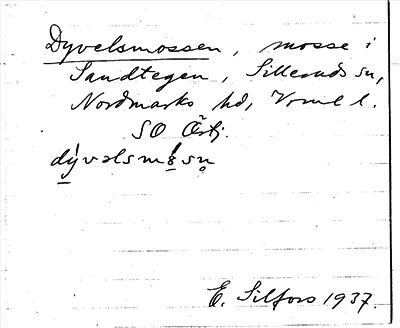 Dyvelsmossen, mosse i
Sandtegen, Silleruds sn,
Nordmarks hd, Vrml l.
SO Östj.
dý̱vəlsmo̱̍sn̥
E. Silfors 1937.